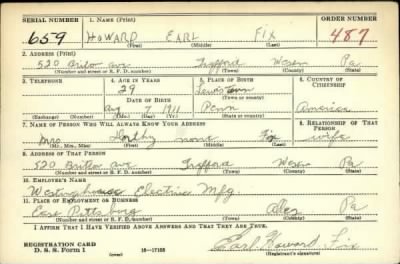 SERIAL NUMBER 1. NAME (Print) ORDER NUMBER
659 HOWARD EARL FIX 487
(First) (Middle) (Last)
2. ADDRESS (Print)
520 Ave Trafford Pa
(Number and street or R. F. D. number) (Town) (County) (State)
3. TELEPHONE 4. AGE IN YEARS 5. PLACE OF BIRTH 6. COUNTRY OF CITIZENSHIP
29 Lewistown
(Town or county)
DATE OF BIRTH
Aug 7 1911 Penn America
(Exchange) (Number) (Mo.) (Day) (Yr.) (State or country)
7. NAME OF PERSON WHO WILL ALWAYS KNOW YOUR ADDRESS 8. RELATIONSHIP OF THAT PERSON
Mrs Dorothy none Fix wife
(Mr., Mrs., Miss) (First) (Middle) (Last)
9. ADDRESS OF THAT PERSON
520 Ave Trafford Pa
(Number and street or R. F. D. number) (Town) (County) (State)
10. EMPLOYER'S NAME
Westinghouse Electric Mfg
11. PLACE OF EMPLOYMENT OR BUSINESS
East Pittsburg Pa
(Number and street or R. F. D. number) (Town) (County) (State)
I AFFIRM THAT I HAVE VERIFIED ABOVE ANSWERS AND THAT THEY ARE TRUE.
REGISTRATION CARD
D. S. S. Form 1 (over) 16—17105 Earl Howard Fix
(Registrant's signature)